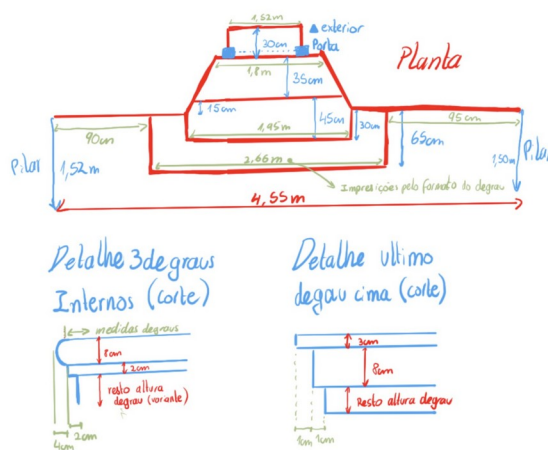 1,52m
▲ exterior
Porta
30cm
Planta
1,8m
35cm
15cm
45cm
30cm
1,95m
90cm
95cm
65cm
Pilar
1,52m
2,66m
1,50m
Pilar
Impresições pelo formato do degrau
4,55m
Detalhe 3 degraus
Internos (corte)
medidas degraus
8cm
2cm
resto altura
degrau (variante)
2cm
4cm
Detalhe ultimo
degau cima (corte)
3cm
8cm
Resto altura degrau
1cm
1cm